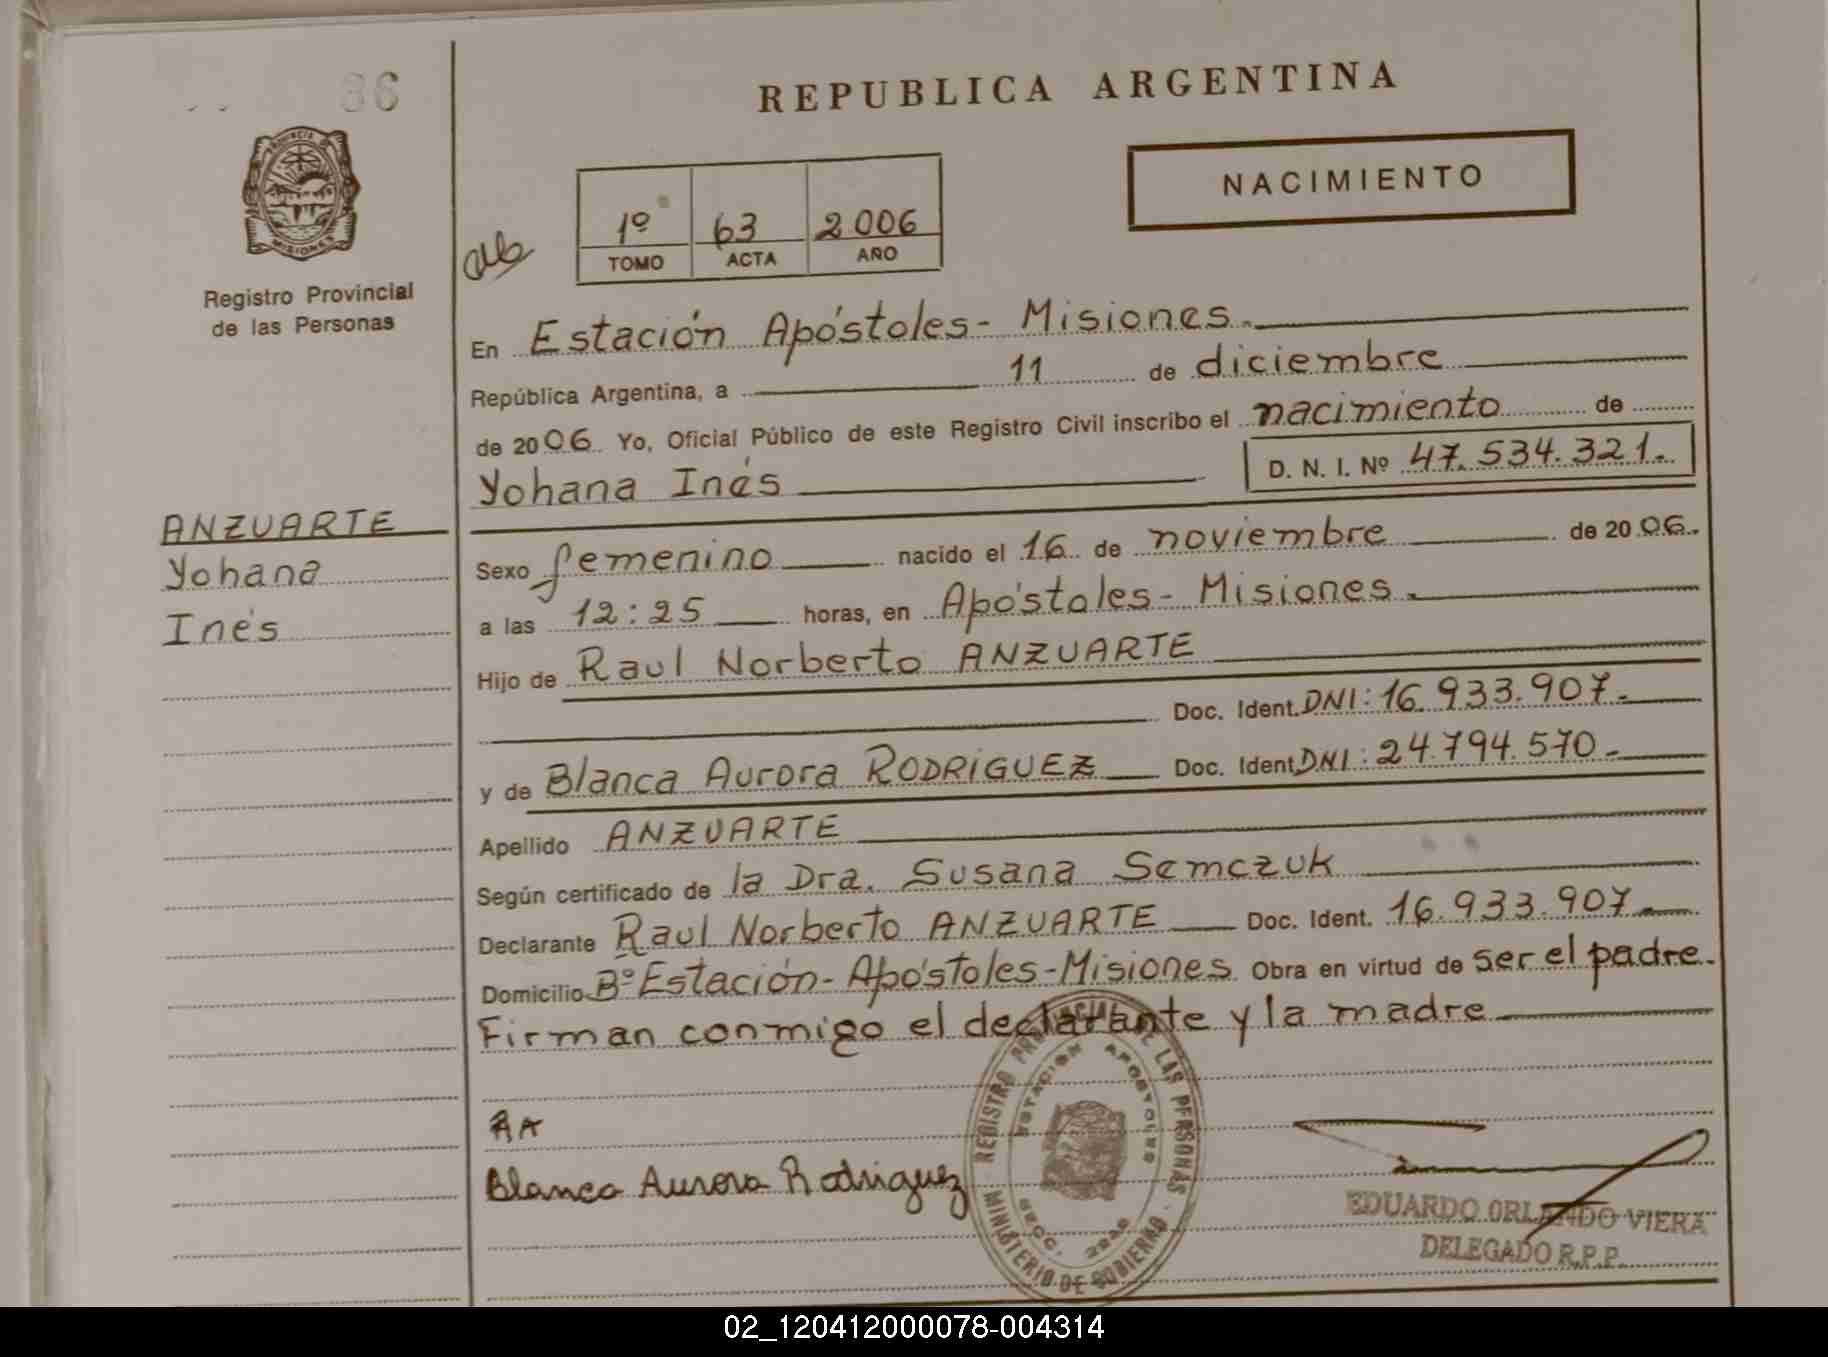 86
REPUBLICA ARGENTINA
PROVINCIA DE
MISIONES
Registro Provincial
de las Personas
NACIMIENTO
1º 63 2006
TOMO ACTA AÑO
En Estación Apóstoles - Misiones.
República Argentina, a 11 de diciembre
de 2006. Yo, Oficial Público de este Registro Civil inscribo el nacimiento de
Yohana Inés D. N. I. Nº 47.534.321.-
ANZUARTE
Yohana
Inés
Sexo femenino nacido el 16 de noviembre de 2006.
a las 12:25 horas, en Apóstoles - Misiones.
Hijo de Raul Norberto ANZUARTE
Doc. Ident. DNI: 16.933.907.-
y de Blanca Aurora RODRIGUEZ Doc. Ident. DNI: 24.794.570-
Apellido ANZUARTE
Según certificado de la Dra. Susana Semczuk
Declarante Raul Norberto ANZUARTE Doc. Ident. 16.933.907-
Domicilio Bº Estación - Apóstoles - Misiones Obra en virtud de ser el padre.
Firman conmigo el declarante y la madre
RA
Blanca Aurora Rodriguez
REGISTRO PROVINCIAL DE LAS PERSONAS
ESTACION APOSTOLES
MINISTERIO DE GOBIERNO
EDUARDO ORLANDO VIERA
DELEGADO R.P.P.
02_120412000078-004314